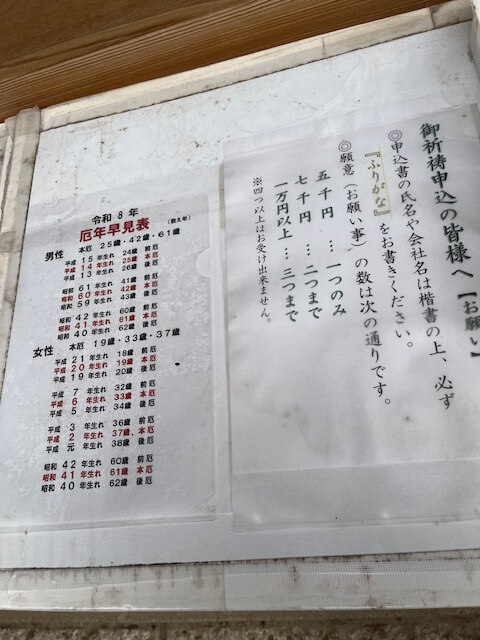 御祈祷申込の皆様へ【お願い】
◎申込書の氏名や会社名は楷書の上、必ず
『ふりがな』をお書きください。
◎願意（お願い事）の数は次の通りです。
五千円 … 一つのみ
七千円 … 二つまで
一万円以上 … 三つまで
※四つ以上はお受け出来ません。
令和 8 年
厄年早見表 （数え年）
男性 本厄 25歳・42歳・61歳
平成 15 年生れ 24歳 前厄
平成 14 年生れ 25歳 本厄
平成 13 年生れ 26歳 後厄
昭和 61 年生れ 41歳 前厄
昭和 60 年生れ 42歳 本厄
昭和 59 年生れ 43歳 後厄
昭和 42 年生れ 60歳 前厄
昭和 41 年生れ 61歳 本厄
昭和 40 年生れ 62歳 後厄
女性 本厄 19歳・33歳・37歳
平成 21 年生れ 18歳 前厄
平成 20 年生れ 19歳 本厄
平成 19 年生れ 20歳 後厄
平成 7 年生れ 32歳 前厄
平成 6 年生れ 33歳 本厄
平成 5 年生れ 34歳 後厄
平成 3 年生れ 36歳 前厄
平成 2 年生れ 37歳 本厄
平成 元 年生れ 38歳 後厄
昭和 42 年生れ 60歳 前厄
昭和 41 年生れ 61歳 本厄
昭和 40 年生れ 62歳 後厄